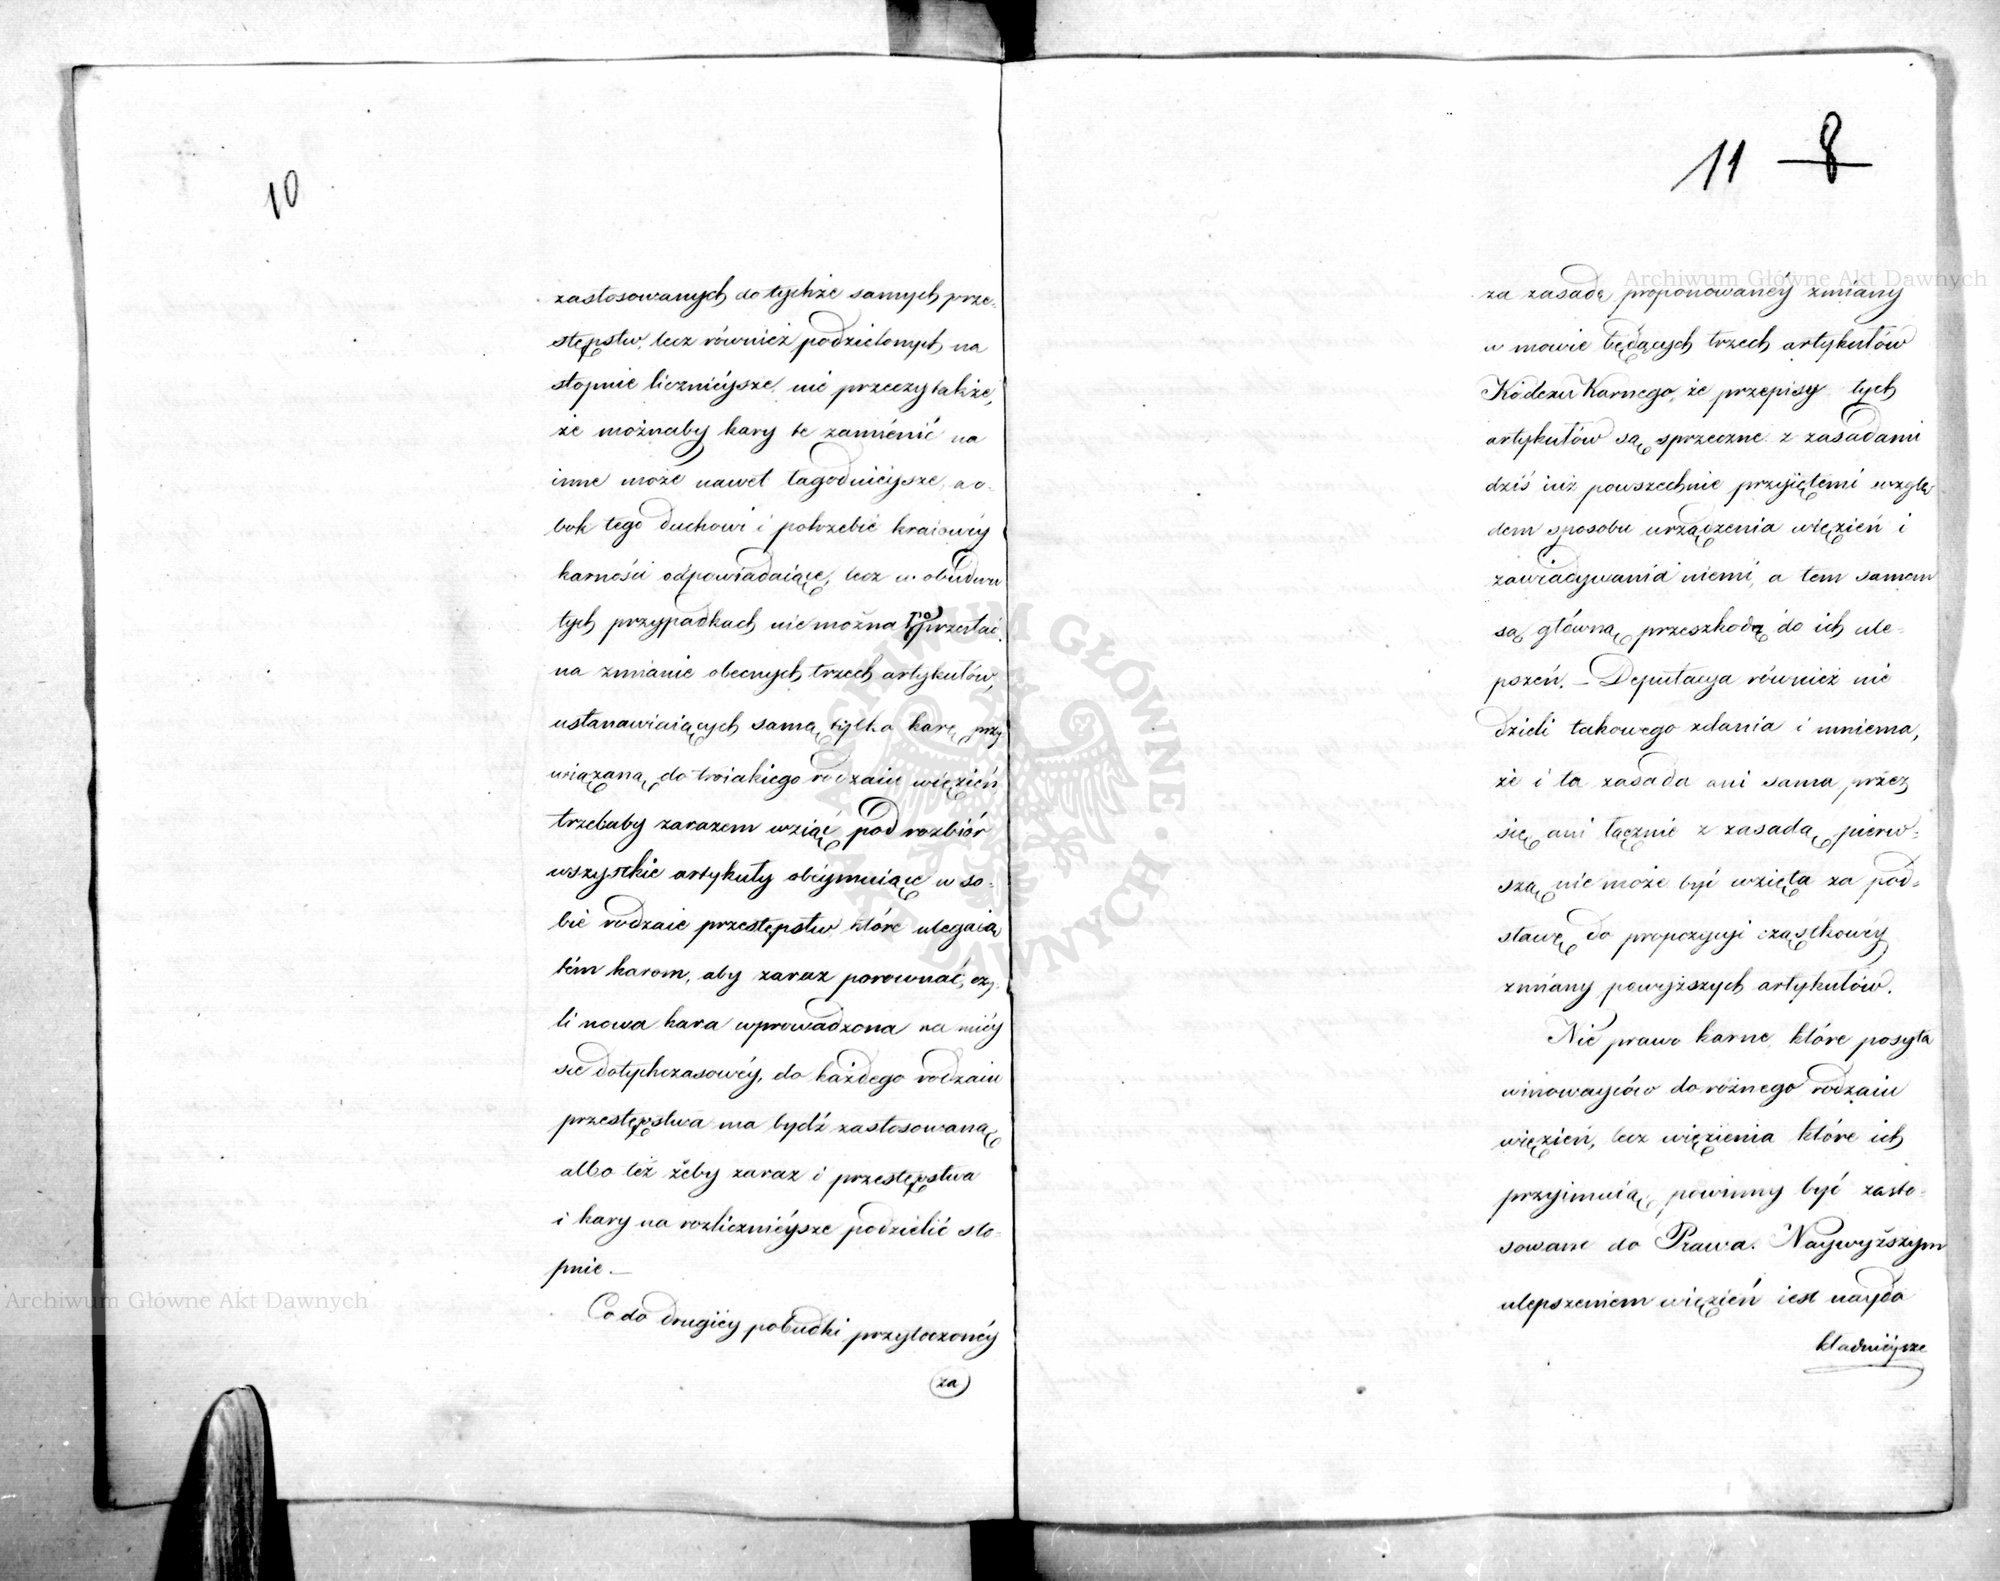 10
zastosowanych do tychże samych prze-
stępstw, lecz również podzielonych na
stopnie licznieysze, nie przeczy także,
że możnaby kary te zamienić na
inne może nawet łagodnieysze, a o-
bok tego duchowi i potrzebie kraiowéy
karności odpowiadaiące, lecz w obudwu
tych przypadkach nie można poprzestać
na zmianie obecnych trzech artykułów,
ustanawiaiących samą tylko karę przy
wiązaną do troiakiego rodzaiu więzień
trzebaby zarazem wziąć pod rozbiór
wszystkie artykuły obeymuiące w so-
bie rodzaie przestępstw które ulegaią
tém karom, aby zaraz porownać, czy-
li nowa kara wprowadzona na miéy
sce dotychczasowéy, do każdego rodzaiu
przestępstwa ma bydź zastosowaną
albo też żeby zaraz i przestępstwa
i kary na rozlicznieysze podzielić sto-
pnie. —
Co do drugiéy pobudki przytoczonéy
za
11 8
za zasadę proponowanéy zmiany
w mowie będących trzech artykułów
Kodexu Karnego, że przepisy tych
artykułów są sprzeczne z zasadami
dziś iuż powszechnie przyiętemi wzglę
dem sposobu urządzenia więzień i
zawiadywania niemi, a tem samem
są główną przeszkodą do ich ule-
pszeń. — Deputacya również nie
dzieli takowego zdania i mniema,
że i ta zasada ani sama przez
się ani łącznie z zasadą pierw-
szą nie może być wzięta za pod-
stawę do propozycyi cząstkowéy
zmiany powyższych artykułów.
Nie prawo karne, które posyła
winowayców do różnego rodzaiu
więzień, lecz więzienia które ich
przyimuią powinny być zasto-
sowane do Prawa. Naywyższym
ulepszeniem więzień iest naydo
kładnieysze
Archiwum Główne Akt Dawnych
Archiwum Główne Akt Dawnych
ARCHIWUM GŁÓWNE AKT DAWNYCH